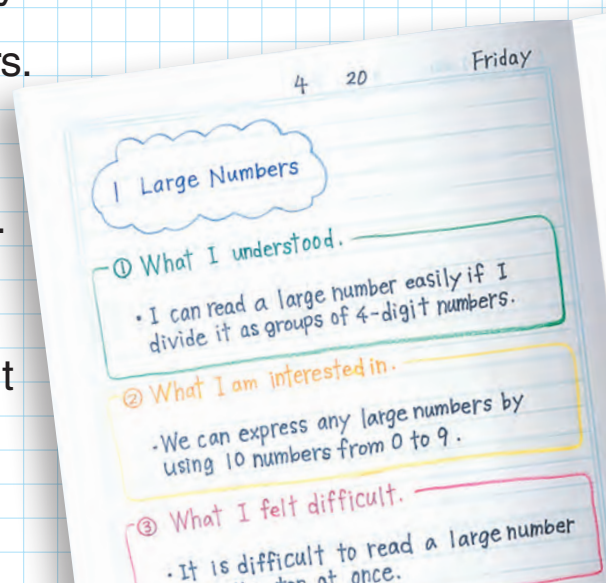 s.
.
t
4 20 Friday
1 Large Numbers
① What I understood.
・I can read a large number easily if I
divide it as groups of 4-digit numbers.
② What I am interested in.
・We can express any large numbers by
using 10 numbers from 0 to 9.
③ What I felt difficult.
・It is difficult to read a large number
at once.